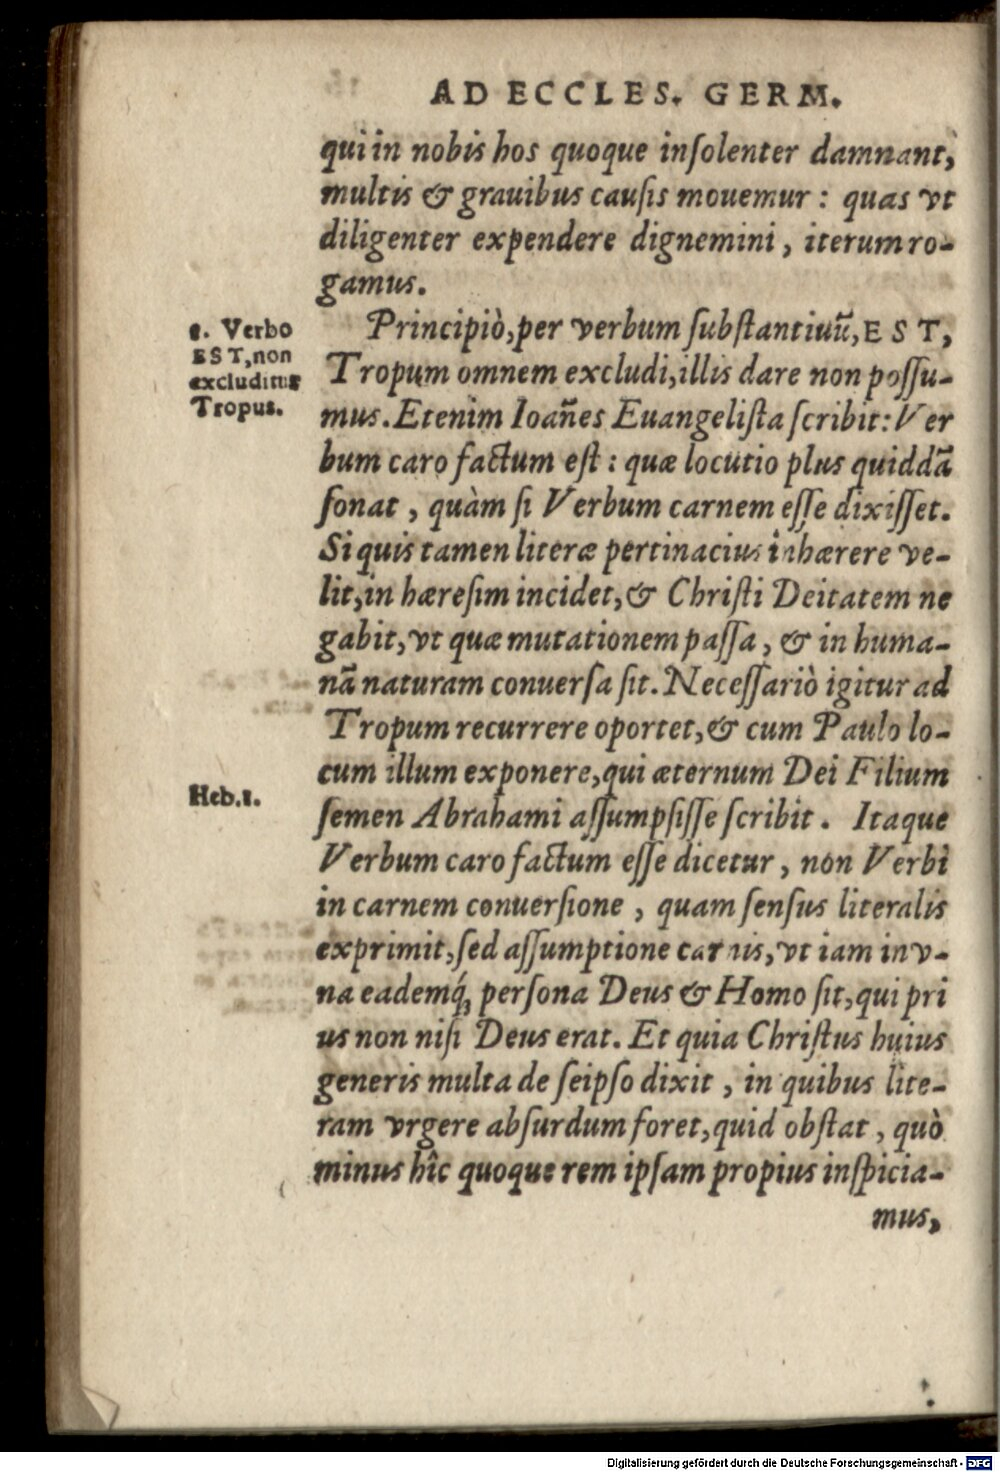 AD ECCLES. GERM.
qui in nobis hos quoque inſolenter damnant,
multis & grauibus cauſis mouemur : quas vt
diligenter expendere dignemini, iterum ro-
gamus.
1. Verbo
EST, non
excluditur
Tropus.
Principiò, per verbum ſubſtantiuũ, EST,
Tropum omnem excludi, illis dare non poſſu-
mus. Etenim Ioañes Euangeliſta ſcribit: Ver
bum caro factum eſt : quæ locutio plus quiddã
ſonat, quàm ſi Verbum carnem eſſe dixiſſet.
Si quis tamen literæ pertinacius inhærere ve-
lit, in hæreſim incidet, & Chriſti Deitatem ne
gabit, vt quæ mutationem paſſa, & in huma-
nã naturam conuerſa ſit. Neceſſariò igitur ad
Tropum recurrere oportet, & cum Paulo lo-
cum illum exponere, qui æternum Dei Filium
Heb.1.
ſemen Abrahami aſſumpſiſſe ſcribit. Itaque
Verbum caro factum eſſe dicetur, non Verbi
in carnem conuerſione, quam ſenſus literalis
exprimit, ſed aſſumptione carnis, vt iam in v-
na eademq́; perſona Deus & Homo ſit, qui pri
us non niſi Deus erat. Et quia Chriſtus huius
generis multa de ſeipſo dixit, in quibus lite-
ram vrgere abſurdum foret, quid obſtat, quò
minus hîc quoque rem ipſam propius inſpicia-
mus,
Digitalisierung gefördert durch die Deutsche Forschungsgemeinschaft - DFG